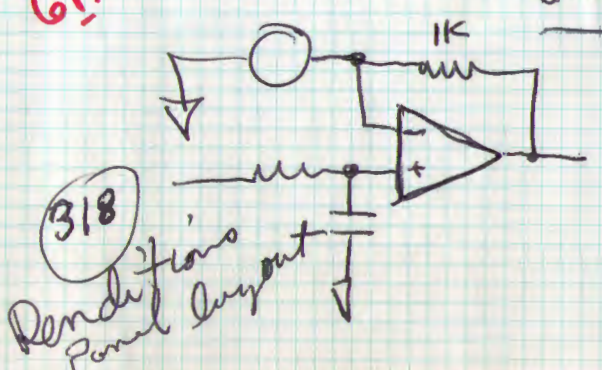 1K
-
+
318
Renditions
Panel layout